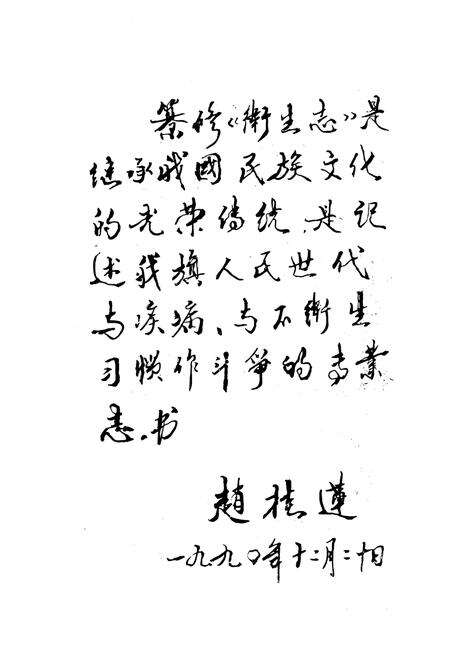 纂修《衛生志》是
继承我國民族文化
的光荣傳统,是记
述我旗人民世代
与疾病、与不衛生
习惯作斗爭的专業
志书
趙桂蓮
一九九〇年十二月二十日